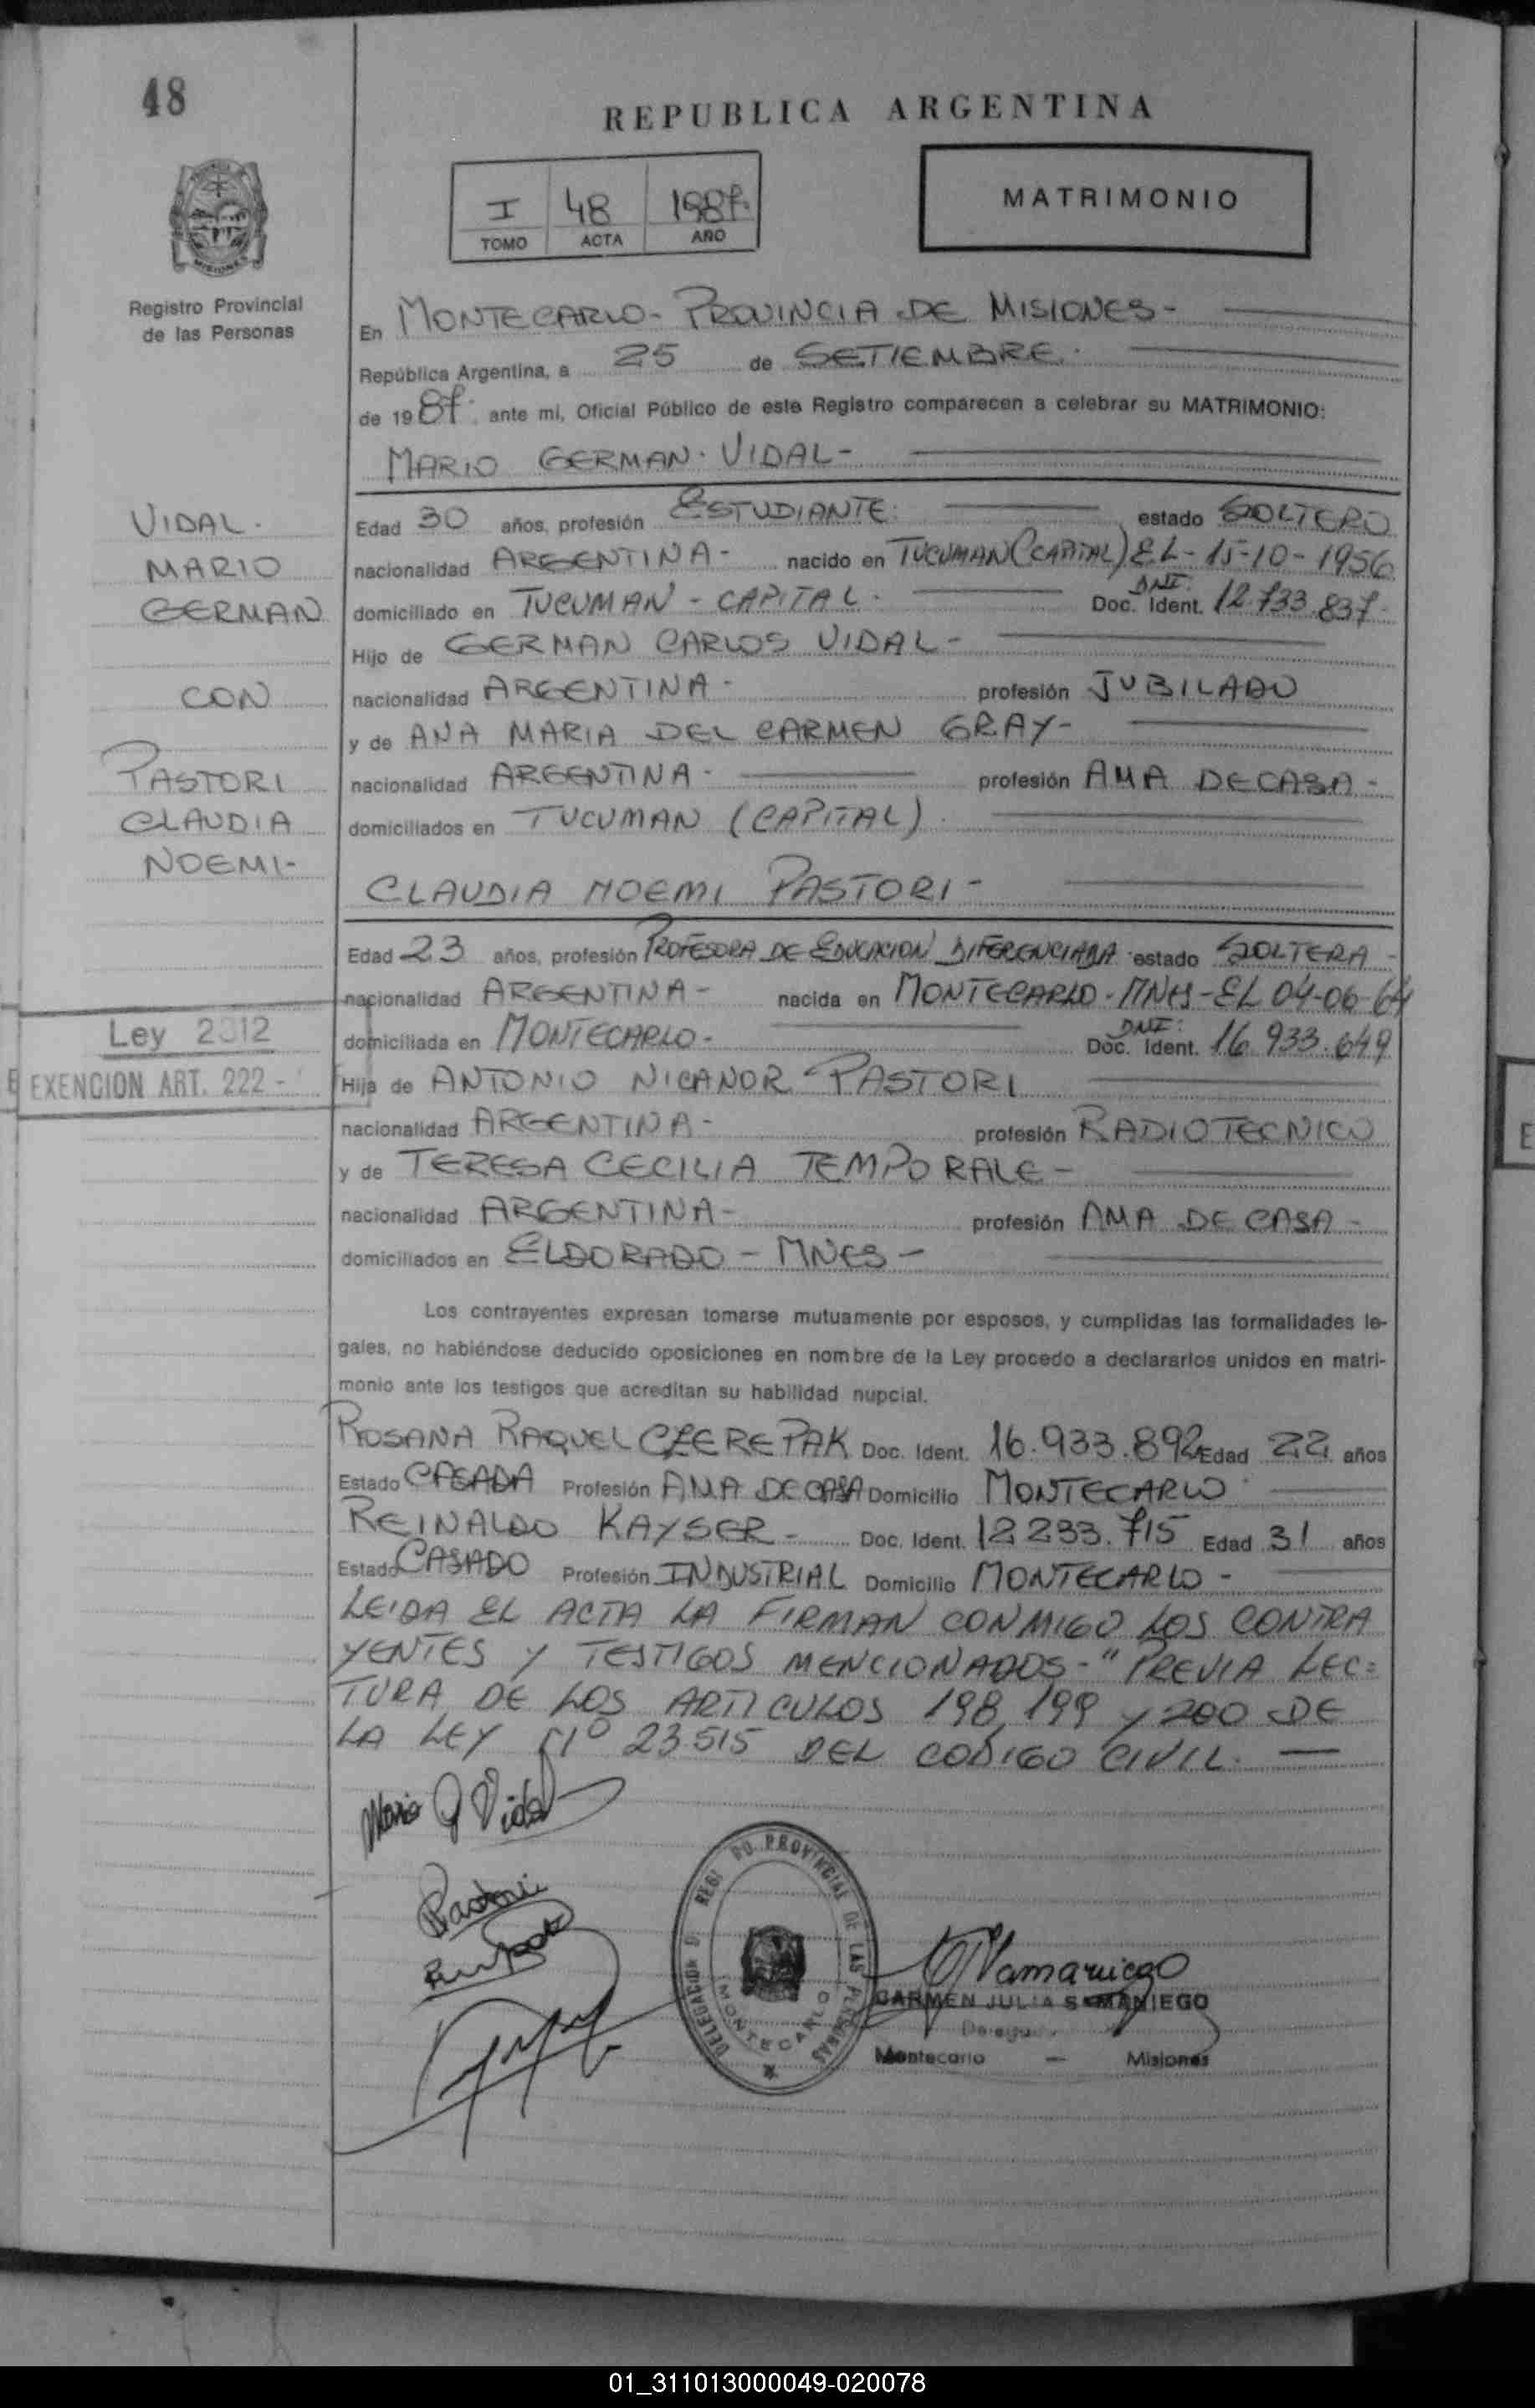 48
REPUBLICA ARGENTINA
I 48 1987.
TOMO ACTA AÑO
MATRIMONIO
MISIONES
Registro Provincial
de las Personas
En MONTECARLO - PROVINCIA DE MISIONES -
República Argentina, a 25 de SETIEMBRE.
de 1987. ante mi, Oficial Público de este Registro comparecen a celebrar su MATRIMONIO:
MARIO GERMAN VIDAL -
VIDAL.
MARIO
GERMAN
CON
PASTORI
CLAUDIA
NOEMI-
Edad 30 años, profesión ESTUDIANTE. estado SOLTERO
nacionalidad ARGENTINA - nacido en TUCUMAN (CAPITAL) EL - 15-10-1956
domiciliado en TUCUMAN - CAPITAL. DNI. Doc. Ident. 12.733.837
Hijo de GERMAN CARLOS VIDAL -
nacionalidad ARGENTINA - profesión JUBILADO
y de ANA MARIA DEL CARMEN GRAY -
nacionalidad ARGENTINA - profesión AMA DE CASA -
domiciliados en TUCUMAN (CAPITAL).
CLAUDIA NOEMI PASTORI -
Edad 23 años, profesión PROFESORA DE EDUCACION DIFERENCIADA estado SOLTERA -
nacionalidad ARGENTINA - nacida en MONTECARLO - MNES - EL 04-06-64
domiciliada en MONTECARLO - DNI: Doc. Ident. 16.933.649
Ley 2312
EXENCION ART. 222 -
Hija de ANTONIO NICANOR PASTORI
nacionalidad ARGENTINA - profesión RADIOTECNICO
y de TERESA CECILIA TEMPORALE -
nacionalidad ARGENTINA - profesión AMA DE CASA -
domiciliados en ELDORADO - MNES -
Los contrayentes expresan tomarse mutuamente por esposos, y cumplidas las formalidades le-
gales, no habiéndose deducido oposiciones en nombre de la Ley procedo a declararlos unidos en matri-
monio ante los testigos que acreditan su habilidad nupcial.
ROSANA RAQUEL CZEREPAK Doc. Ident. 16.933.892 Edad 22 años
Estado CASADA Profesión AMA DE CASA Domicilio MONTECARLO
REINALDO KAYSER - Doc. Ident. 12233.715 Edad 31 años
Estado CASADO Profesión INDUSTRIAL Domicilio MONTECARLO -
LEIDA EL ACTA LA FIRMAN CONMIGO LOS CONTRA
YENTES Y TESTIGOS MENCIONADOS - "PREVIA LEC=
TURA DE LOS ARTICULOS 198, 199 y 200 DE
LA LEY Nº 23.515 DEL CODIGO CIVIL. —
Mario G Vidal
Pastori
MONTECARLO
CARMEN JULIA SAMANIEGO
Montecarlo — Misiones
01_311013000049-020078